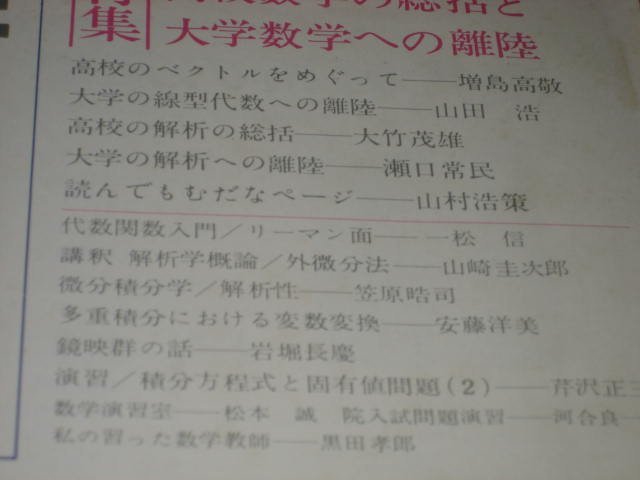 特集
高校数学の総括と
大学数学への離陸
高校のベクトルをめぐって——増島高敬
大学の線型代数への離陸——山田 浩
高校の解析の総括——大竹茂雄
大学の解析への離陸——瀬口常民
読んでもむだなページ——山村浩策
代数関数入門/リーマン面——一松 信
講釈 解析学概論/外微分法——山崎圭次郎
微分積分学/解析性——笠原晧司
多重積分における変数変換——安藤洋美
鏡映群の話——岩堀長慶
演習/積分方程式と固有値問題(2)——芹沢正三
数学演習室——松本 誠 院入試問題演習——河合良一
私の習った数学教師——黒田孝郎